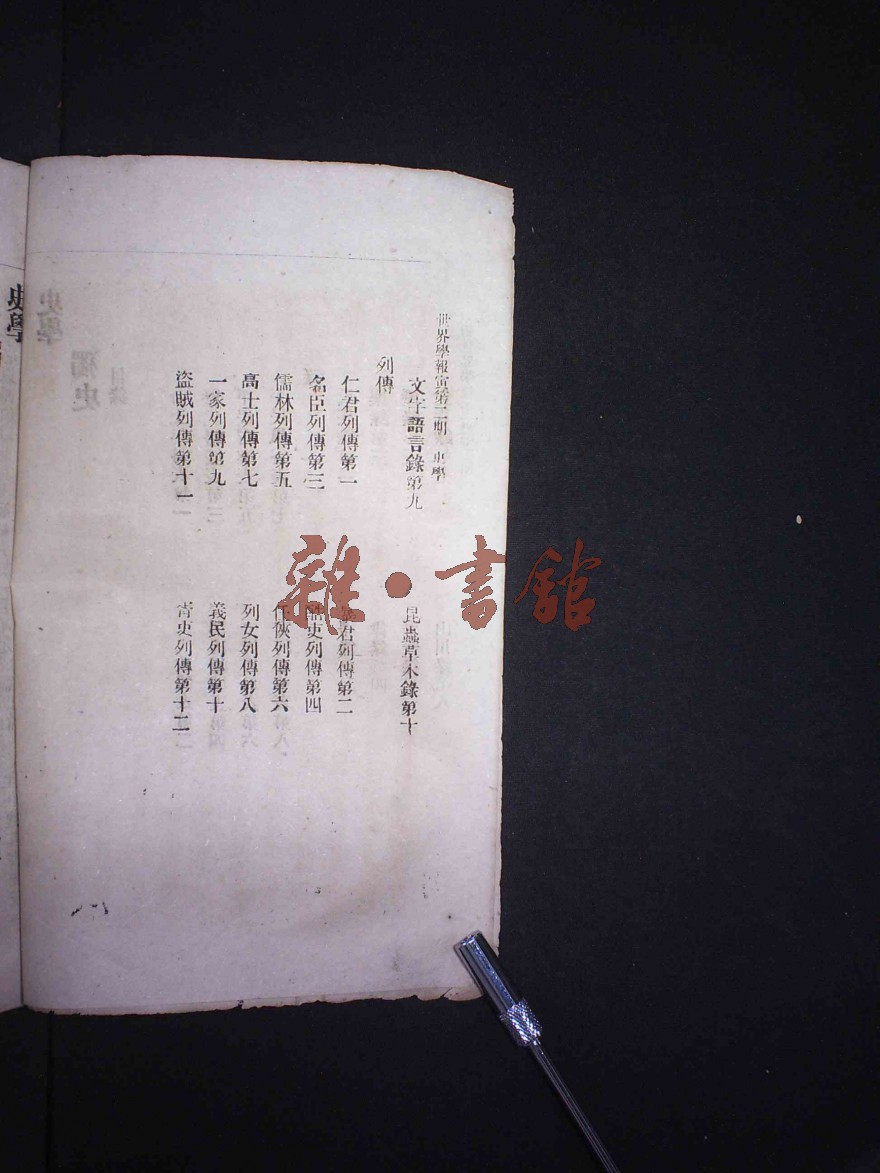 世界學報 第二期 史學
文字語言錄第九 昆蟲草木錄第十
列傳
仁君列傳第一 暴君列傳第二
名臣列傳第三 酷吏列傳第四
儒林列傳第五 任俠列傳第六
高士列傳第七 列女列傳第八
一家列傳第九 義民列傳第十
盜賊列傳第十一 胥史列傳第十二
史學
雜・書館